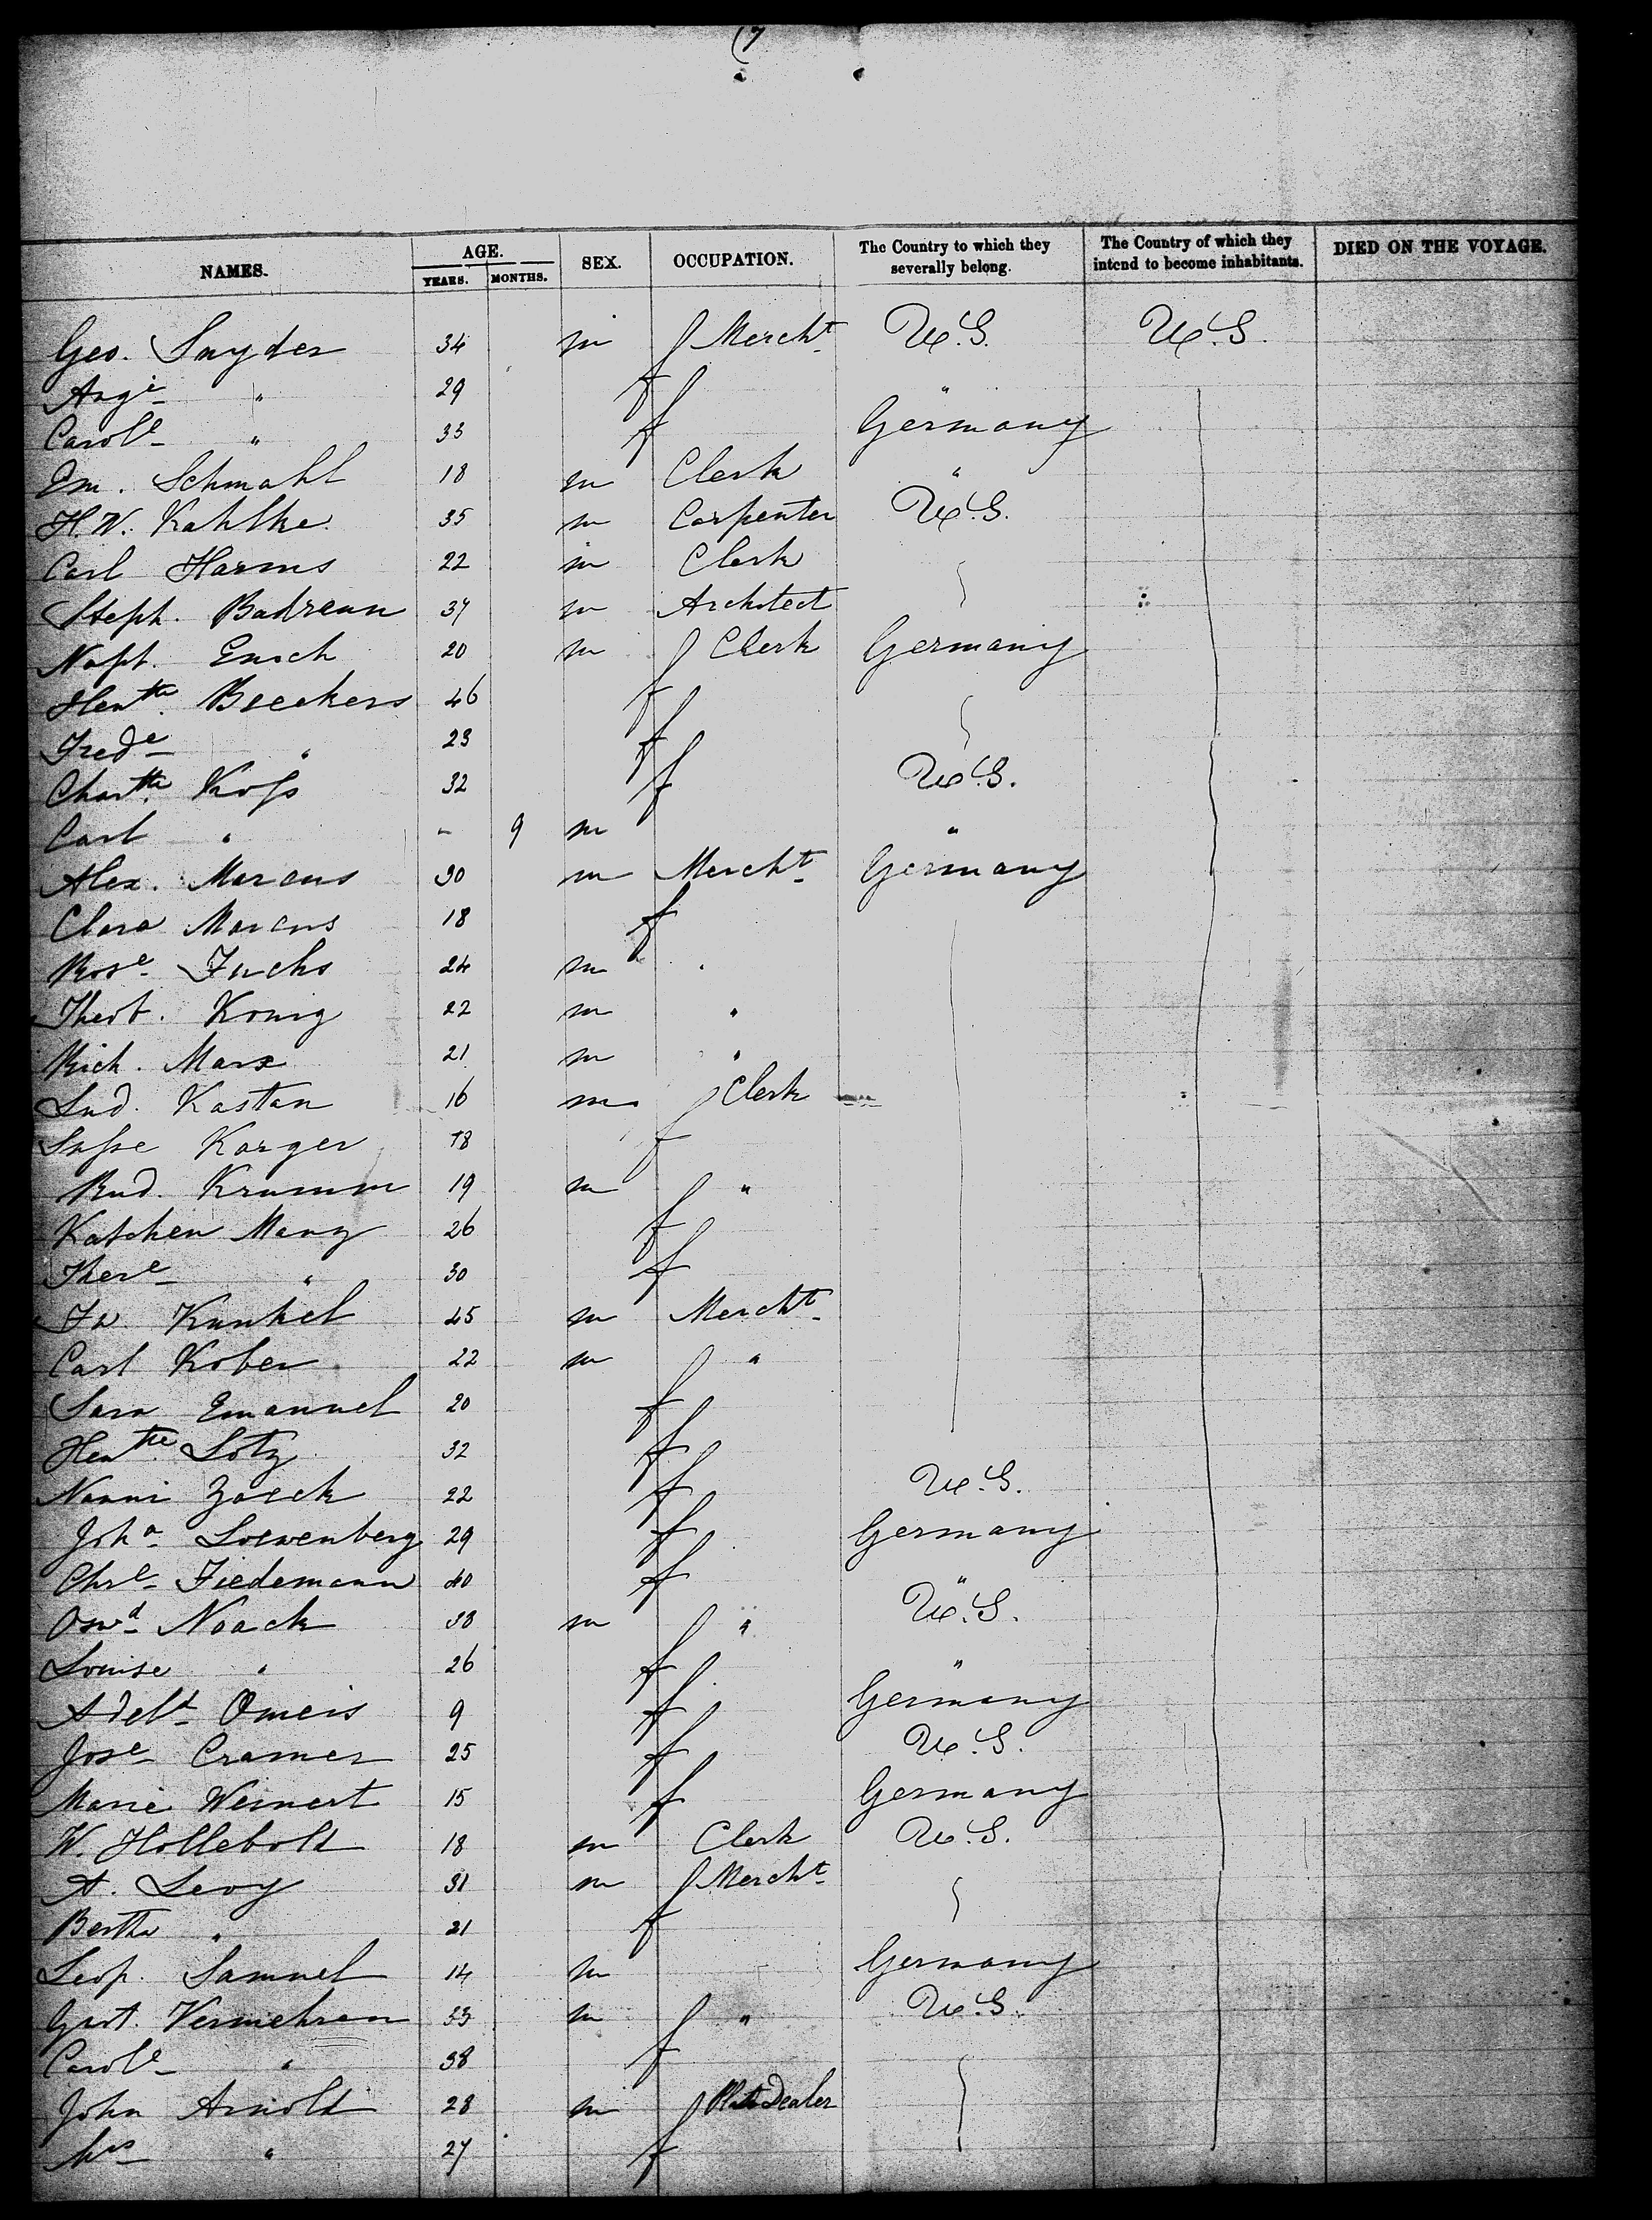 (7
NAMES. AGE. YEARS. MONTHS. SEX. OCCUPATION. The Country to which they severally belong. The Country of which they intend to become inhabitants. DIED ON THE VOYAGE.
Geo. Snyder 34 m Mercht U.S. U.S.
Auge " 29 f "
Carole " 33 f Germany
Em. Schmahl 18 m Clerk "
H.W. Kahlke 35 m Carpenter U.S.
Carl Harms 22 m Clerk
Steph. Badreun 37 m Architect
Napt. Ensch 20 m Clerk Germany
Hentte Beckers 46 f
Frede " 23 f
Chartte Koss 32 f U.S.
Carl " - 9 m "
Alex. Marcus 30 m Mercht Germany
Clara Marcus 18 f
Rose Fuchs 24 m
Theob. Konig 22 m "
Rich. Marx 21 m "
Lud. Kastan 16 m Clerk
Karger 18 f
Rud. Krumm 19 m "
Katchen Manz 26 f
There " 30 f
Fr Kunkel 45 m Mercht
Carl Kober 22 m "
Sara Emanuel 20 f
Hentte Lotz 32 f
Nanni Zoeck 22 f U.S.
Joha Loewenberg 29 f Germany
Chre Tiedemann 40 f "
Oswd Noack 38 m " U.S.
Louise " 26 f "
Adelt Omeis 9 f Germany
Jose Cramer 25 f U.S.
Marie Weinert 15 f Germany
W. Hollebolt 18 m Clerk U.S.
A. Levy 31 m Mercht
Bertha " 21 f
Leop. Samuel 14 m Germany
Gust. Vermehren 33 m " U.S.
Carole " 38 f
John Arnold 28 m Dealer
Mrs " 27 f